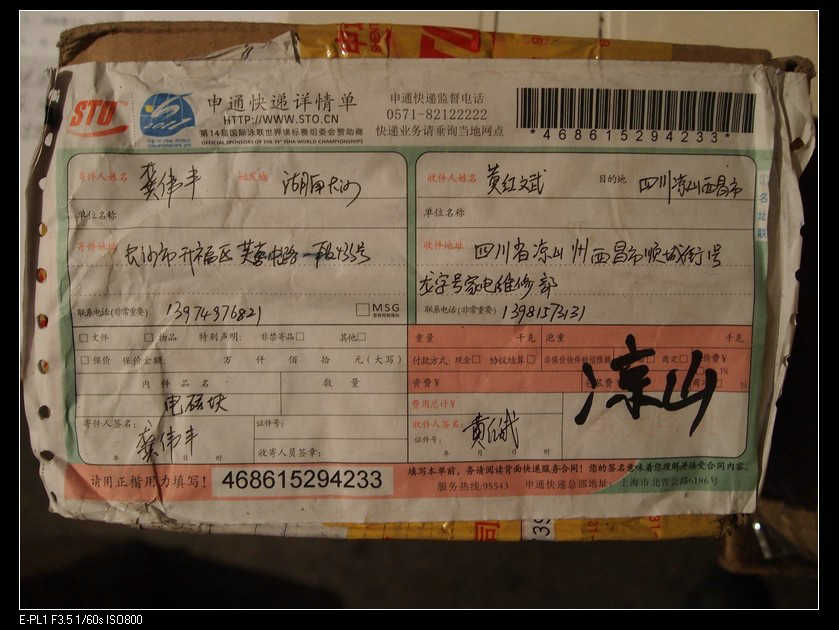 STO
申通快递详情单
HTTP://WWW.STO.CN
第14届国际泳联世界锦标赛组委会赞助商
OFFICIAL SPONSORS OF THE 14TH FINA WORLD CHAMPIONSHIPS
申通快递监督电话
0571-82122222
快递业务请垂询当地网点
*468615294233*
寄件人姓名 龚伟丰 始发地 湖南长沙
单位名称
寄件地址 长沙市开福区芙蓉中路一段435号
联系电话(非常重要) 13974376821 MSG
收件人姓名 黄红斌 目的地 四川凉山西昌市
单位名称
收件地址 四川省凉山州西昌市顺城街 号
龙字号家电维修部
联系电话(非常重要) 13981573131
文件 物品 特别声明: 非禁寄品 其他
保价 保价金额: 万 仟 佰 拾 元(大写)
内件品名 数量
电磁块
寄件人签名: 龚伟丰
年 月 日 时
证件号:
收寄人员签章:
重量 千克 泡重 千克
付款方式: 现金 协议结算
资费¥
费用总计¥
凉山
收件人签名: 黄红斌
证件号:
年 月 日 时
请用正楷用力填写! 468615294233
填写本单前,务请阅读背面快递服务合同!您的签名意味着您理解并接受合同内容。
服务热线:95543 申通快递总部地址:上海市北青公路6186号
E-PL1 F3.5 1/60s ISO800